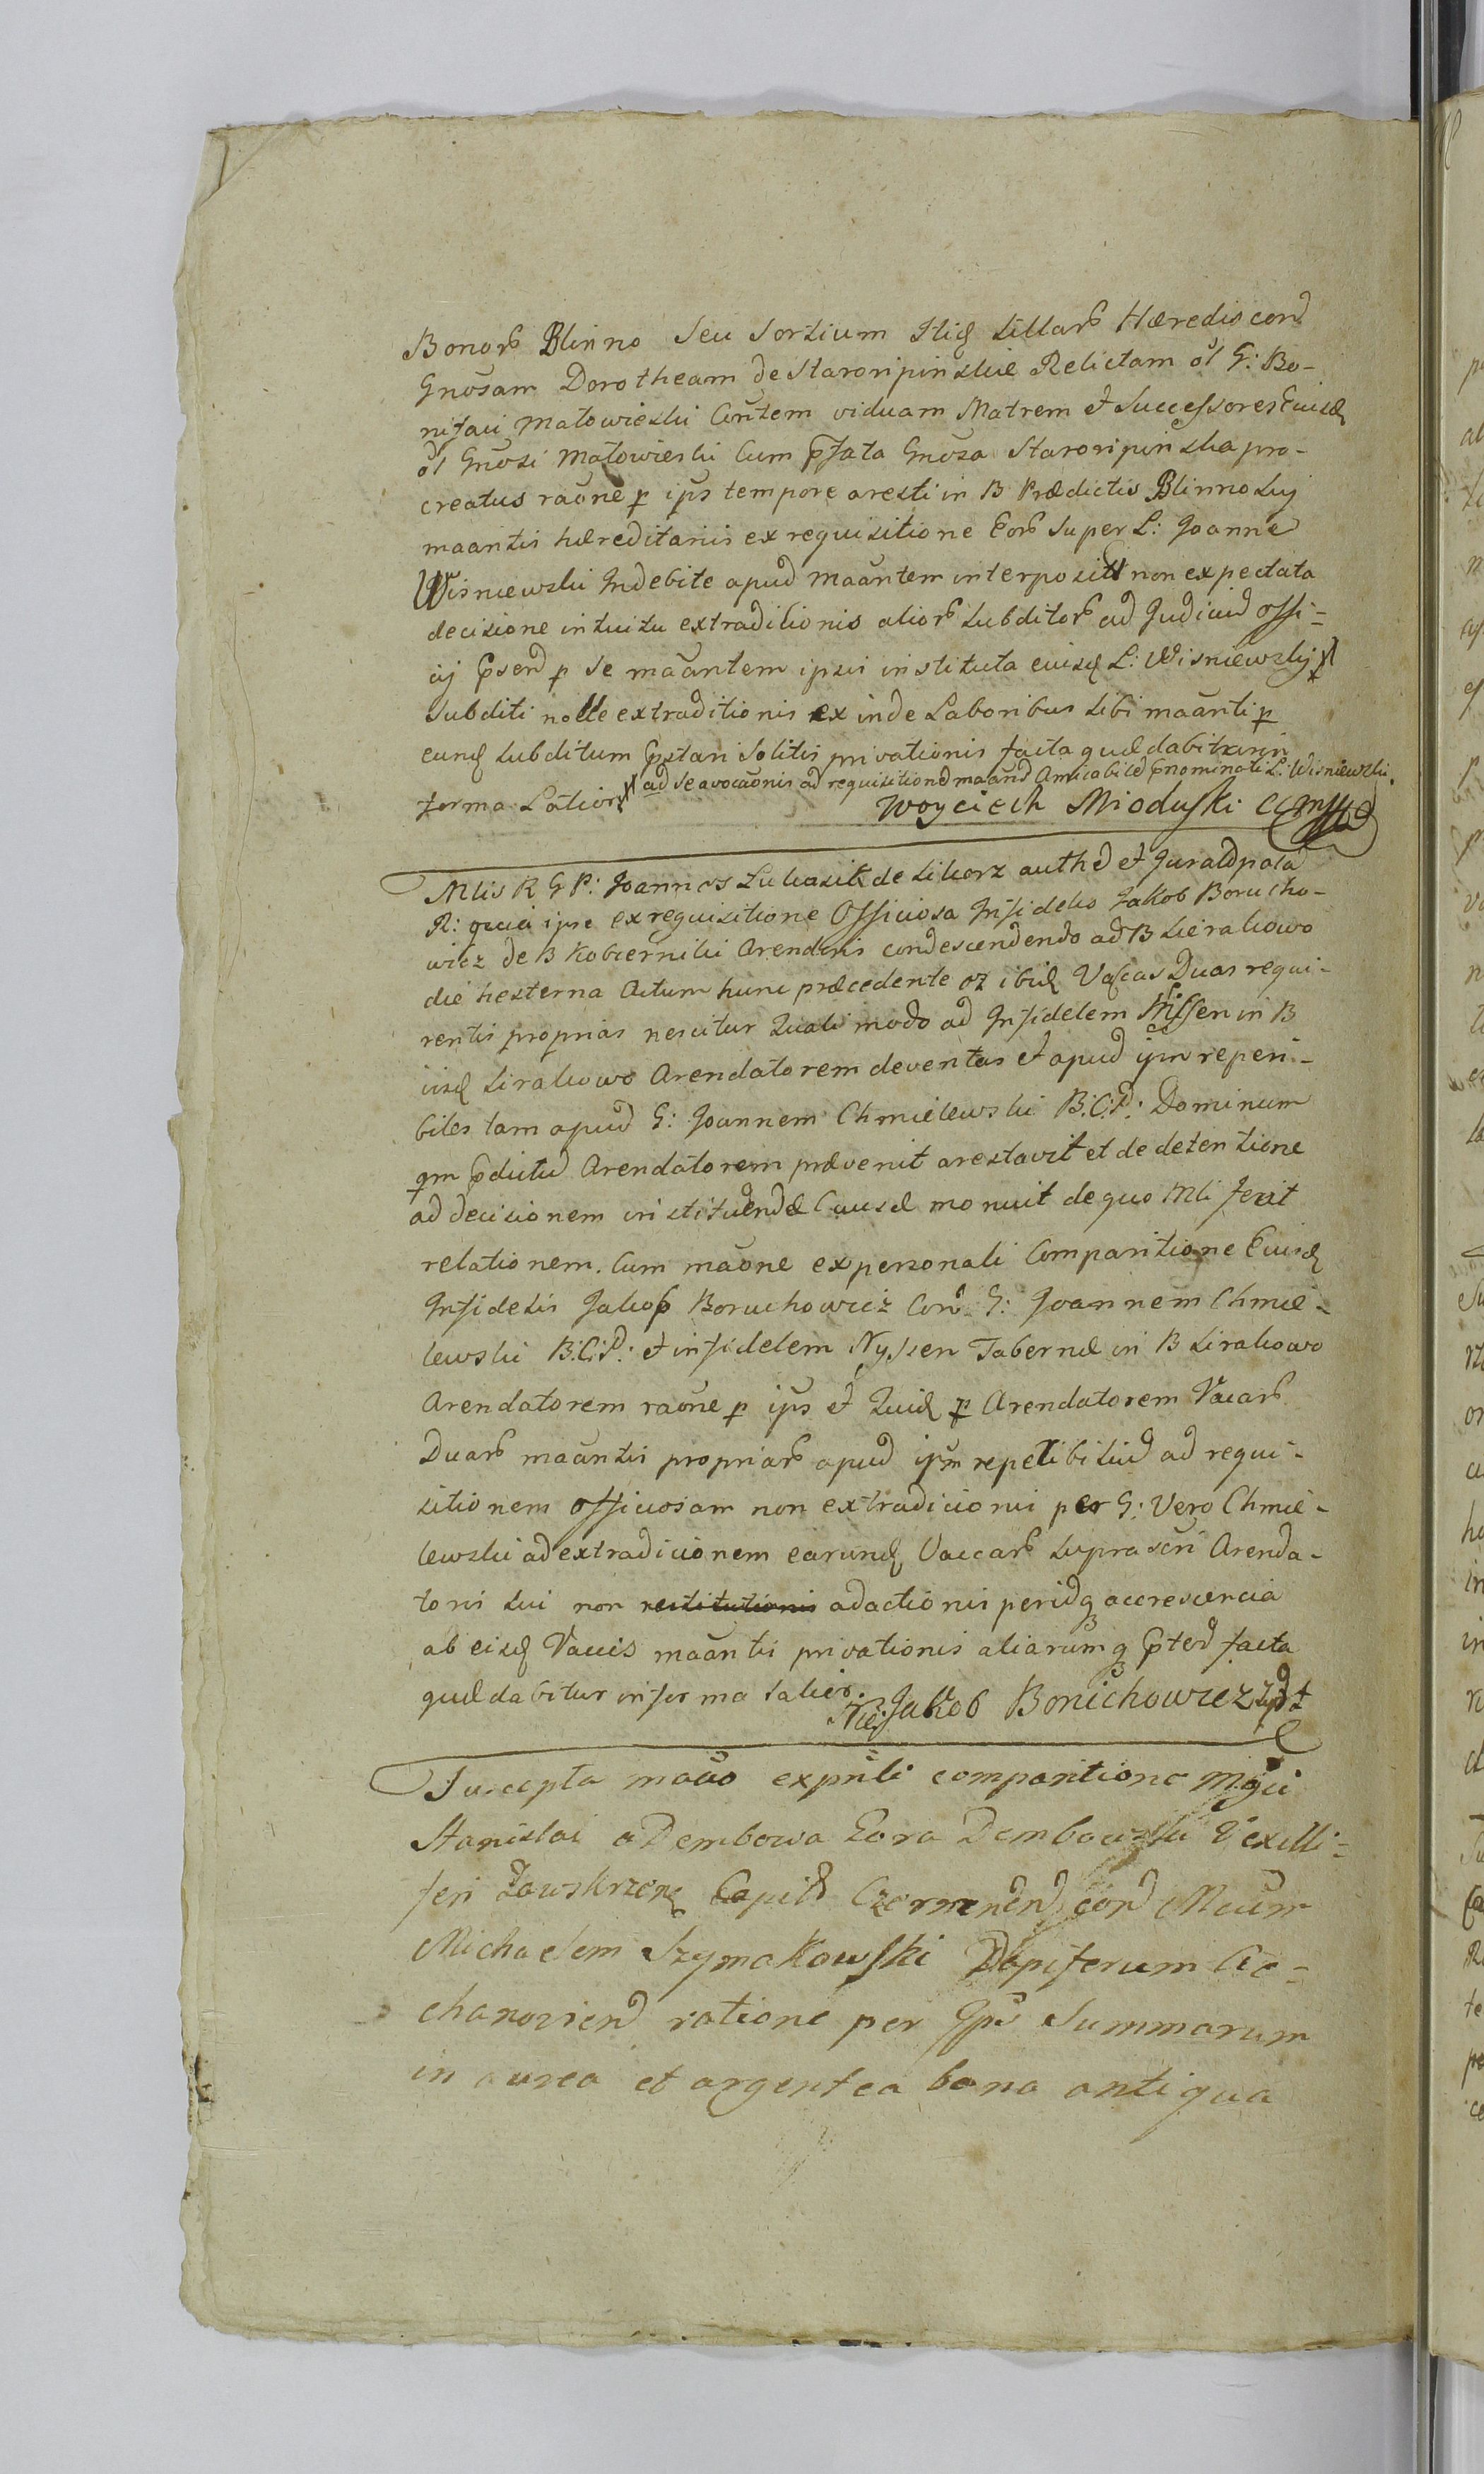 Bonor Blinno Seu Sortium Sillar Hæredis con
Gnosam Dorotheam de Staroripinskie Relictam ol G: Bo-
nifaci Małowieski Contem viduam Matrem et Successores Eiusd
ol Gnosi Małowieski Cum pfata Gnosa Staroripinska pro-
creatus raone p ips tempore aresti in B Prædictis Blinno Suy
maantis hæreditariis ex requisitione Eor Super L: Joanne
Wisniewski Indebite apud maantem interpositi non expectata
decisione intuitu extraditionis alior Subditor ad Judiciu offi=
cij psen p Se maantem ipsi instituta eiusd L: Wisniewskij
Subditi nolle extraditionis ex inde Laboribus Sibi maanti p
eund Subditum pstari Solitis privationis facta quæ dabitur in
ad Se avocaonis ad requisitione maan Amicabile pnominati L: Wisniewski.
forma Latiori
Woyciech Mioduski
Mlis R G P: Joannes Lukasik de Sikorz auth et Jurat pala
R: quia ipse ex requisitione Officiosa Infidelis Jakob Borucho-
wicz de B Kobierniki Arendaris condescendendo ad B Sierakowo
die hesterna Actum hunc præcedente oz ibid Vaccas Duas requi-
rentis proprias nescitur Quali modo ad Infidelem Nissen in B
iisd Sirakowo Arendatorem deventas et apud ipm reperi-
biles tam apud G: Joannem Chmielewski B:C:P: Dominum
qm pdictu Arendatorem prævenit arestavit et de detentione
ad decisionem instituendæ Causæ monuit de quo Mli fecit
relationem. Cum maone ex personali Comparitione Eiusd
Infidelis Jakob Boruchowicz Con G: Joannem Chmie-
lewski B:C:P: et infidelem Nyssen Tabernæ in B Sirakowo
Arendatorem raone p ips et Quid p Arendatorem Vacar
Duar maantis propriar apud ipm repetibiliu ad requi-
sitionem officiosam non extradicionis per G: Vero Chmie-
lewski ad extradicionem earund Vaccar Suprascri Arenda-
toris Sui non restitutionis adactionis peridq accrescencia
ab eisd Vaccis maanti privationis aliarumq pter facta
quæ dabitur in forma latior.
Jakob Boruchowicz
Suscepta maao ex pnli comparitione Mgci
Stanislai a Dembowa Gora Dembowski Vexilli=
feri Zawskrzen Capit Czermenen con Mcum
Michaelem Szymakowski Dapiferum Cie=
chanovien ratione per Ips Summarum
in aurea et argentea bona antiqua